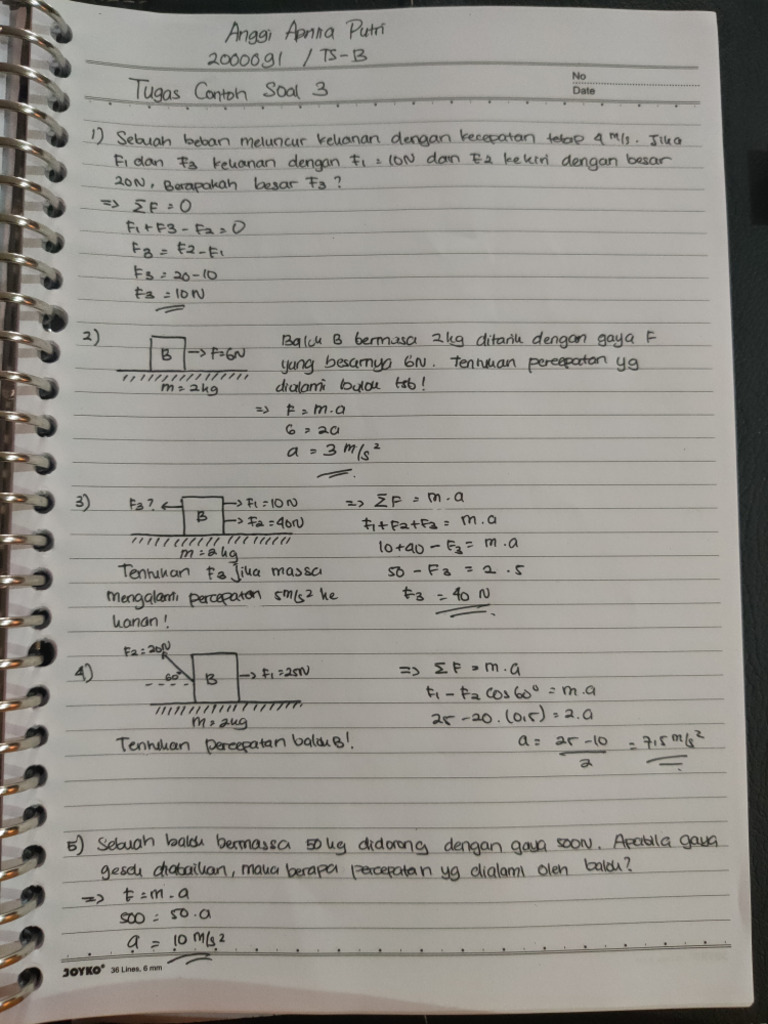 Anggi Aprina Putri
2000091 / TS-B
No
Date
Tugas Contoh Soal 3
1) Sebuah beban meluncur kekanan dengan kecepatan tetap 4 m/s. Jika
F1 dan F3 kekanan dengan F1 = 10N dan F2 kekiri dengan besar
20N, Berapakah besar F3 ?
=> ΣF = 0
F1 + F3 - F2 = 0
F3 = F2 - F1
F3 = 20 - 10
F3 = 10 N
2)
B → F = 6N
m = 2kg
Balok B bermasa 2kg ditarik dengan gaya F
yang besarnya 6N. Tentukan percepatan yg
dialami balok tsb!
=> F = m.a
6 = 2a
a = 3 m/s²
3)
F3? ← B → F1 = 10N
→ F2 = 40N
m = 2kg
Tentukan F3 jika massa
mengalami percepatan 5m/s² ke
kanan!
=> ΣF = m.a
F1 + F2 + F3 = m.a
10 + 40 - F3 = m.a
50 - F3 = 2 . 5
F3 = 40 N
4)
F2 = 20N
60° B → F1 = 25N
m = 2kg
Tentukan percepatan balok B!
=> ΣF = m.a
F1 - F2 cos 60° = m.a
25 - 20 . (0,5) = 2.a
a = 25 - 10 / 2 = 7,5 m/s²
5) Sebuah balok bermassa 50 kg didorong dengan gaya 500N. Apabila gaya
gesek diabaikan, maka berapa percepatan yg dialami oleh balok?
=> F = m.a
500 = 50.a
a = 10 m/s²
JOYKO® 36 Lines, 6 mm